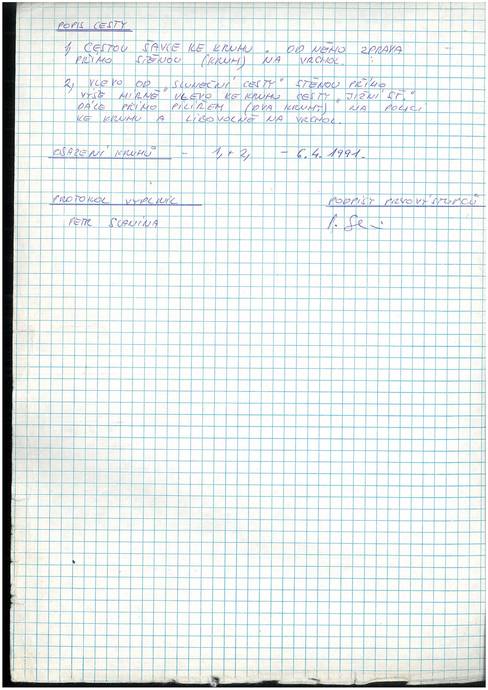 POPIS CESTY
1, CESTOU ŠAVCE KE KRUHU. OD NĚHO ZPRAVA
PŘÍMO STĚNOU (KRUH) NA VRCHOL.
2, VLEVO OD „SLUNEČNÍ CESTY" STĚNOU PŘÍMO
VÝŠE MÍRNĚ VLEVO KE KRUHU CESTY „JIŽNÍ ST."
DÁLE PŘÍMO PILÍŘEM (DVA KRUHY) NA POLICI
KE KRUHU A LIBOVOLNĚ NA VRCHOL.
OSAZENÍ KRUHŮ - 1, + 2, - 6.4.1991.
PROTOKOL VYPLNIL PODPISY PRVOVÝSTUPCŮ
PETR SLANINA